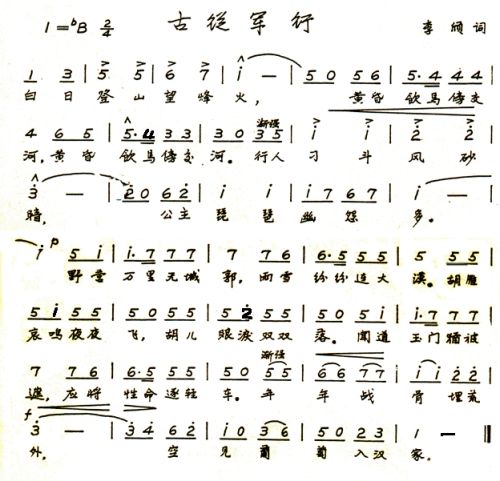 1=ᵇB 2/4 古從军行 李颀 词
1 3 | 5 5 | 6 7 | i — | 5 0 5 6 | 5·4 4 4 |
白日登山望烽火， 黄昏饮马傍交
4 6 5 | 5·4 3 3 | 3 0 3 5 | i i | 2 2 |
渐强
河，黄昏 饮马傍交 河。行人 刁 斗 风 砂
3 — | 2 0 6 2 | i i | i 7 6 7 | i — |
暗， 公主 琵 琶 幽 怨 多。
p
i 5 i | i·7 7 7 | 7 7 6 | 6·5 5 5 | 5 5 5 |
野营 万里无城 郭，雨雪 纷纷连大 漠。胡雁
5 i 5 5 | 5 0 5 5 | 5 2 5 5 | 5 0 5 i | i·7 7 7 |
哀鸣夜夜 飞，胡儿 眼泪双双 落。闻道 玉门犹被
渐强
7 7 6 | 6·5 5 5 | 5 0 5 5 | 6 6 7 7 | i i 2 2 |
遮，应将 性命逐轻 车。年 年 战 骨埋荒
f
3 — | 3 4 6 2 | i 0 3 6 | 5 0 2 3 | 1 — ‖
外。 空 见葡 萄入汉 家。